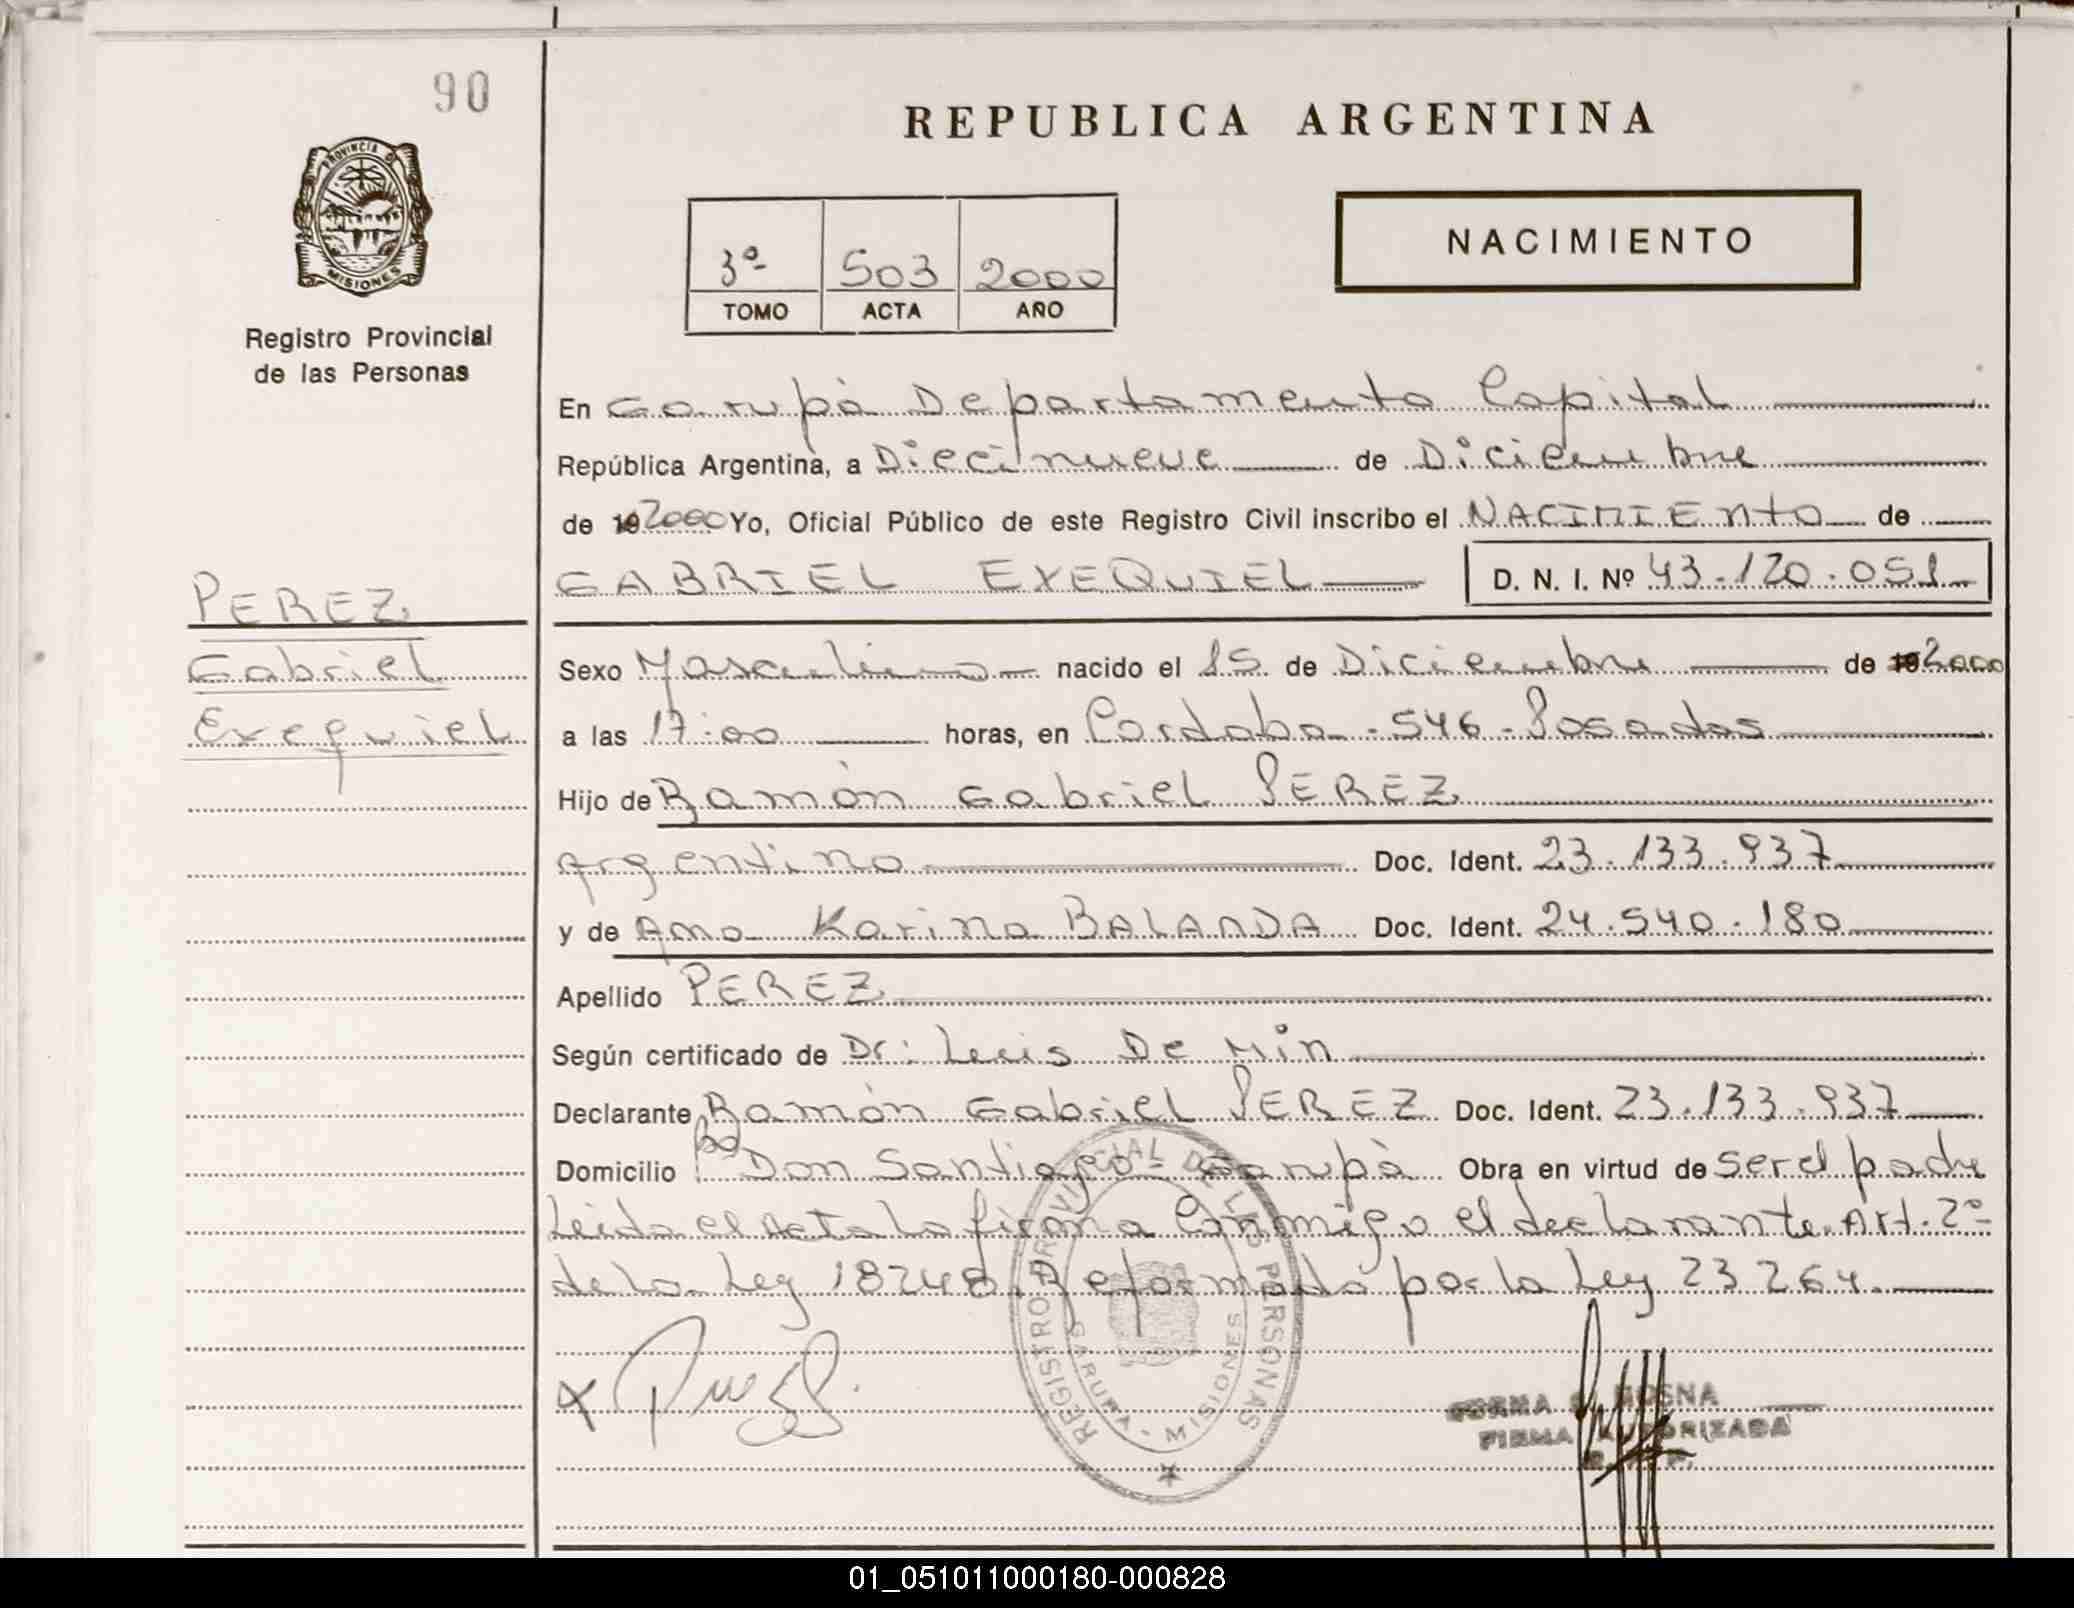 90
REPUBLICA ARGENTINA
PROVINCIA DE
MISIONES
Registro Provincial
de las Personas
3º 503 2000
TOMO ACTA AÑO
NACIMIENTO
En Garupà Departamento Capital
República Argentina, a Diecinueve de Diciembre
de 19 2000 Yo, Oficial Público de este Registro Civil inscribo el NACIMIENTO de
GABRIEL EXEQUIEL D. N. I. Nº 43.120.051
PEREZ
Gabriel
Exequiel
Sexo Masculino nacido el 15 de Diciembre de 19 2000
a las 17:00 horas, en Cordoba - 546 - Posadas
Hijo de Ramòn Gabriel PEREZ
Argentino Doc. Ident. 23.133.937
y de Ana Karina BALANDA Doc. Ident. 24.540.180
Apellido PEREZ
Según certificado de Dr: Luis De Min
Declarante Ramòn Gabriel PEREZ Doc. Ident. 23.133.937
Domicilio Bº Don Santiago - Garupà Obra en virtud de ser el padre
Leida el Acta la firma Conmigo el declarante. Art. 2º
de la Ley 18248. Reformada por la Ley 23264.
REGISTRO PROVINCIAL DE LAS PERSONAS
GARUPA - MISIONES
NORMA MOSNA
FIRMA AUTORIZADA
01_051011000180-000828